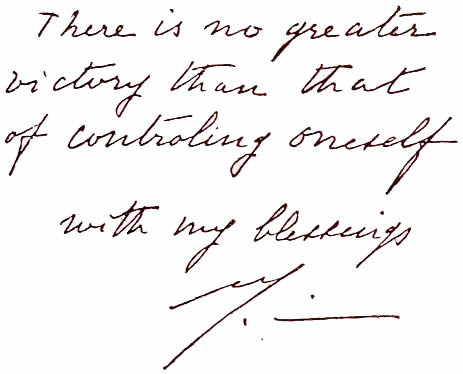 There is no greater
victory than that
of controling oneself
with my blessings